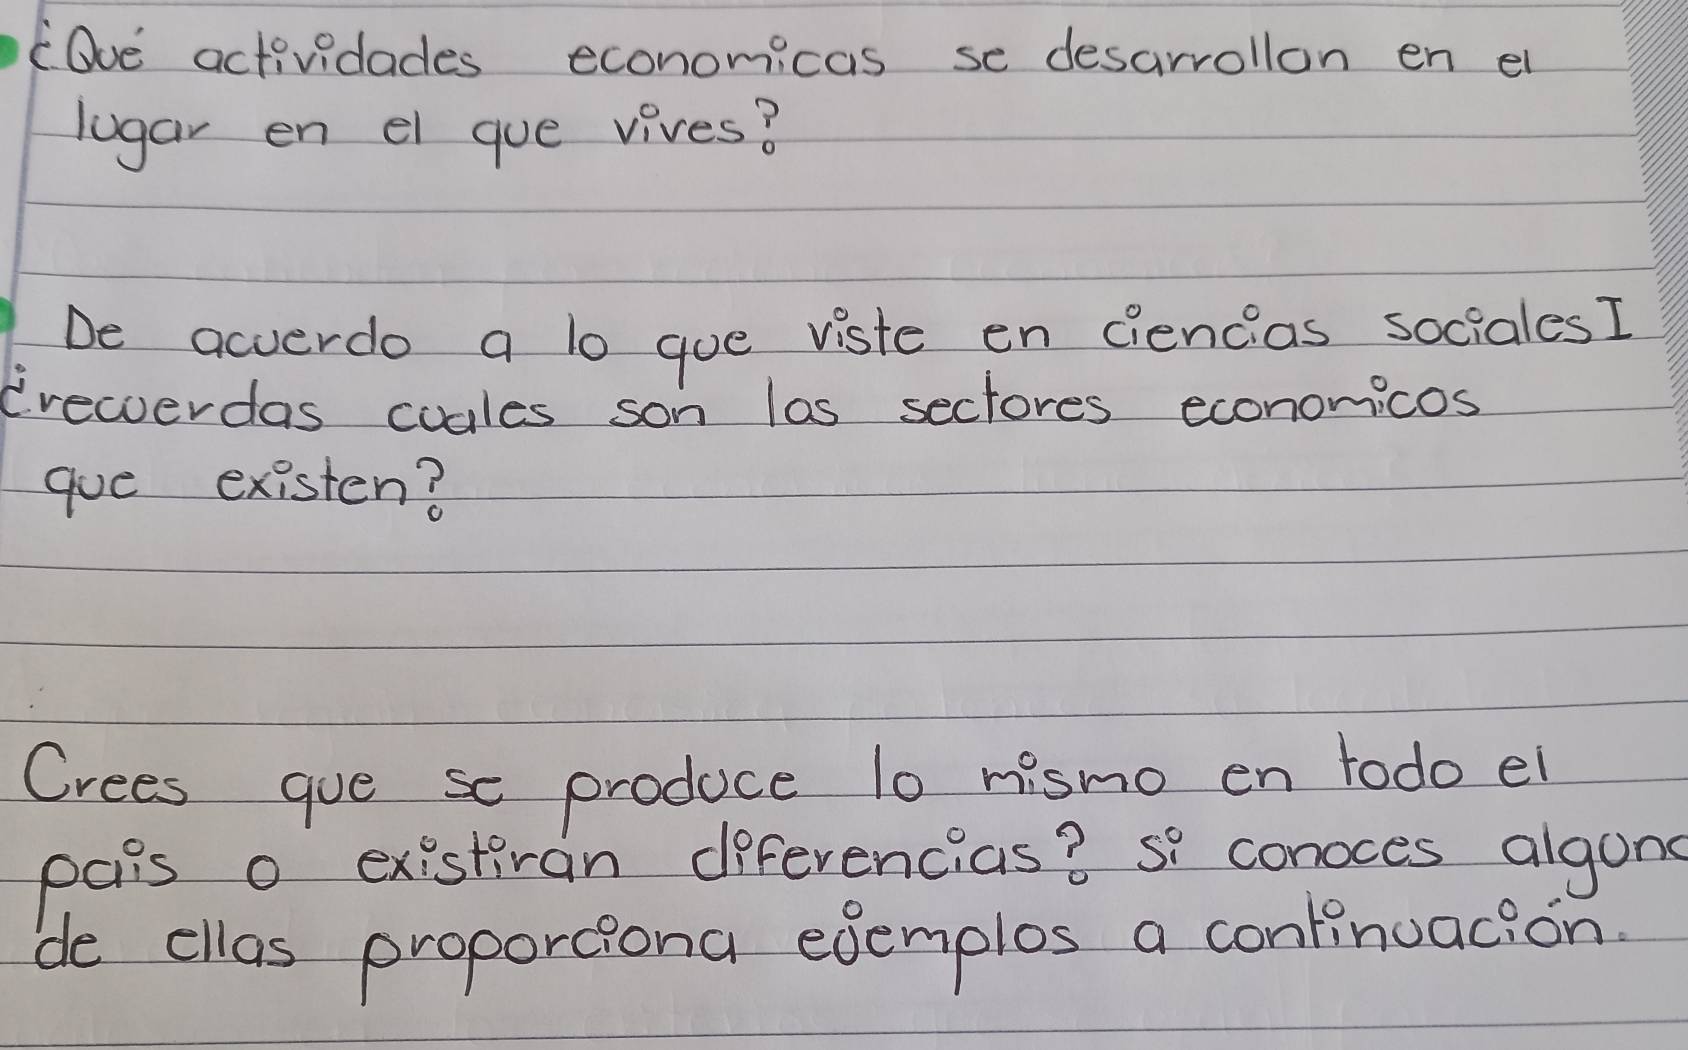 ¿Qué actividades economicas se desarrollan en el
lugar en el que vives?
De acuerdo a lo que viste en ciencias sociales I
¿recuerdas cuales son los sectores economicos
que existen?
Crees que se produce lo mismo en todo el
pais o existirán diferencias? si conoces alguna
de ellas proporciona ejemplos a continuación.